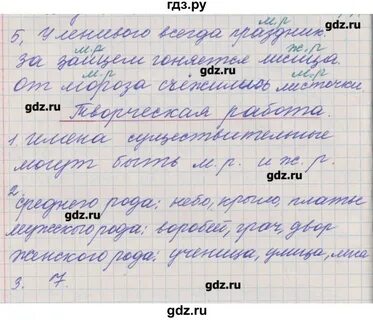 гдз.ру
м.р
5, У ленивого всегда праздник.
м.р ж.р
За зайцем гоняется лисица.
м.р
От мороза съёжились листочки
Творческая работа.
1. имена существительные
могут быть м. р. и ж. р.
2
среднего рода: небо, крыло, платье
мужского рода: воробей, грач, двор
женского рода: ученица, улица,
3. 7.
gdz.ru
gdz.ru
gdz.ru
gdz.ru
gdz.ru
gdz.ru
gdz.ru
gdz.ru